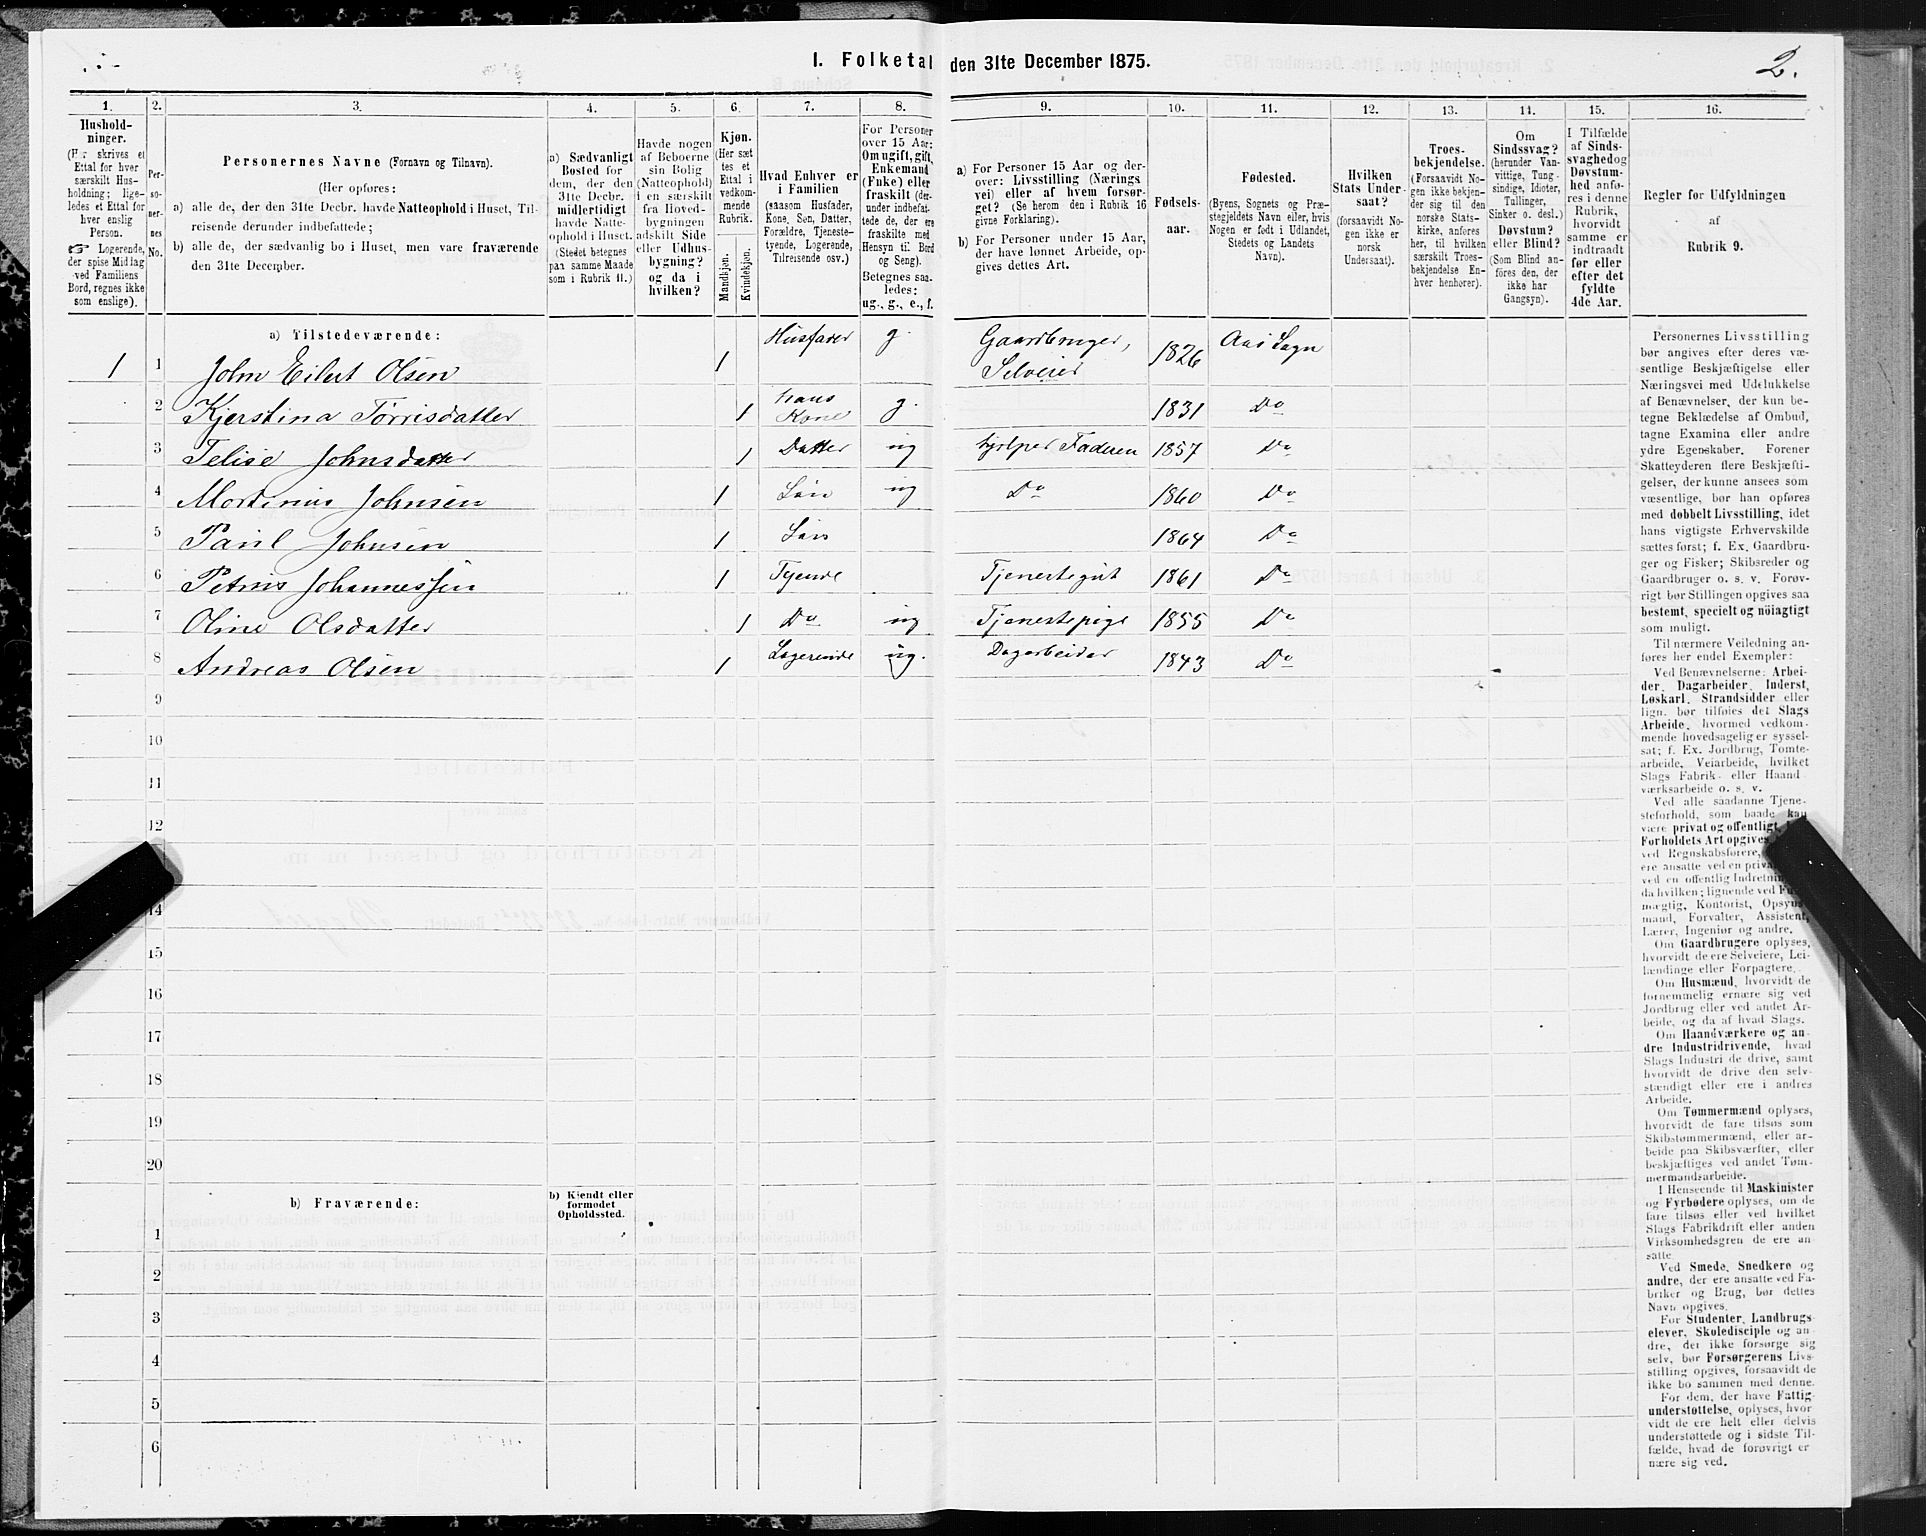 I. Folketal den 31te December 1875.
2.
1. 2. 3. 4. 5. 6. 7. 8. 9. 10. 11. 12. 13. 14. 15. 16.
Hushold-
ninger.
(Her skrives et
Ettal for hver
særskilt Hus-
holdning; lige-
ledes et Ettal for
hver enslig
Person.
☞ Logerende,
der spise Middag
ved Familiens
Bord, regnes ikke
som enslige).
Per-
so-
ner-
nes
No.
Personernes Navne (Fornavn og Tilnavn).
(Her opføres:
a) alle de, der den 31te Decbr. havde Natteophold i Huset, Til-
reisende derunder indbefattede;
b) alle de, der sædvanlig bo i Huset, men vare fraværende
den 31te December.
a) Sædvanligt
Bosted for
dem, der den
31te Decbr.
midlertidigt
havde Natte-
ophold i Huset.
(Stedet betegnes
paa samme Maade
som i Rubrik 11.)
Havde nogen
af Beboerne
sin Bolig
(Natteophold)
i en særskilt
fra Hoved-
bygningen
adskilt Side
eller Udhus-
bygning?
og da i
hvilken?
Kjøn.
(Her sæt
tes et
Ettal i
vedkom-
mende
Rubrik.
Mandkjøn.
Kvindekjøn.
Hvad Enhver er
i Familien
(saasom Husfader,
Kone, Søn, Datter,
Forældre, Tjeneste-
tyende, Logerende,
Tilreisende osv.)
For Personer
over 15 Aar:
Om ugift, gift,
Enkemand
(Enke) eller
fraskilt (der-
under indbefat-
tede de, der ere
fraskilte med
Hensyn til Bord
og Seng).
Betegnes saa-
ledes:
ug., g., e., f.
a) For Personer 15 Aar og der-
over: Livsstilling (Nærings
vei) eller af hvem forsør-
get? (Se herom den i Rubrik 16
givne Forklaring).
b) For Personer under 15 Aar,
der have lønnet Arbeide, op-
gives dettes Art.
Fødsels-
aar.
Fødested.
(Byens, Sognets og Præ-
stegjeldets Navn eller, hvis
Nogen er født i Udlandet,
Stedets og Landets
Navn).
Hvilken
Stats Under-
saat?
(forsaavidt No-
gen ikke er
norsk
Undersaat).
Troes-
bekjendelse.
(Forsaavidt No-
gen ikke bekjen-
der sig til den
norske Stats-
kirke, anføres
her, til hvilken
særskilt Troes-
bekjendelse En-
hver henhører).
Om
Sindssvag?
(herunder Van-
vittige, Tung-
sindige, Idioter,
Tullinger,
Sinker o. desl.)
Døvstum?
eller Blind?
(Som Blind an-
føres den, der
ikke har
Gangsyn).
I Tilfælde
af Sinds-
svaghed og
Døvstum-
hed anfø-
res i denne
Rubrik,
hvorvidt
samme er
indtraadt
før eller
efter det
fyldte
4de Aar.
Regler for Udfyldningen
af
Rubrik 9.
a) Tilstedeværende:
1 1 John Eilert Olsen 1 Husfader g. Gaardbruger, Selveier 1826 Aas Sogn
2 Kjerstina Torrisdatter 1 hans Kone g. 1831 Do
3 Telise Johnsdatter 1 Datter ug hjelper Faderen 1857 Do
4 Mortinus Johnsen 1 Søn ug Do 1860 Do
5 Paul Johnsen 1 Søn 1864 Do
6 Petrus Johannessen 1 Tyende Tjenestegut 1861 Do
7 Oline Olsdatter 1 Do ug Tjenestepige 1855 Do
8 Andreas Olsen 1 Logerende ug. Dagarbeider 1843 Do
9
10
11
12
14
15
16
17
18
19
20
b) Fraværende:
b) Kjendt eller
formodet
Opholdssted.
1
2
3
4
5
6
Personernes Livsstilling
bør angives efter deres væ-
sentlige Beskjæftigelse eller
Næringsvei med Udelukkelse
af Benævnelser, der kun be-
tegne Beklædelse af Ombud,
tagne Examina eller andre
ydre Egenskaber. Forener
Skatteyderen flere Beskjæfti-
gelser, der kunne ansees som
væsentlige, bør han opføres
med dobbelt Livsstilling, idet
hans vigtigste Erhvervskilde
sættes først; f. Ex. Gaardbru-
ger og Fisker; Skibsreder og
Gaardbruger o. s. v. Forøv-
rigt bør Stillingen opgives saa
bestemt, specielt og nöiagtigt
som muligt.
Til nærmere Veiledning an-
føres her endel Exempler:
Ved Benævnelserne: Arbei-
der, Dagarbeider, Inderst,
Løskarl, Strandsidder eller
lign. bør tilføies det Slags
Arbeide, hvormed vedkom-
mende hovedsagelig er syssel-
sat; f. Ex. Jordbrug, Tomte-
arbeide, Veiarbeide, hvilket
Slags Fabrik- eller Haand
værksarbeide o. s. v.
Ved alle saadanne Tjene-
steforhold, som baade kan
være privat og offentligt,
Forholdets Art opgives
ved Regnskabsførere,
ere ansatte ved en
ved en offentlig
da hvilken; lignende ved
mægtig, Kontorist, Opsyns-
mand, Forvalter, Assistent,
Lærer, Ingeniør og andre.
Om Gaardbrugere oplyses,
hvorvidt de ere Selveiere, Lei-
lændinge eller Forpagtere.
Om Husmænd, hvorvidt de
fornemmelig ernære sig ved
Jordbrug eller ved andet Ar-
beide, og da af hvad Slags.
Om Haandværkere og an-
dre Industridrivende, hvad
Slags Industri de drive, samt
hvorvidt de drive den selv-
stændigt eller ere i andres
Arbeide.
Om Tømmermænd oplyses,
hvorvidt de fare tilsøs som
Skibstømmermænd, eller ar-
beide paa Skibsværfter, eller
beskjæftiges ved andet Tøm-
mermandsarbeide.
I Henseende til Maskinister
og Fyrbødere oplyses, om de
fare tilsøs eller ved hvilket
Slags Fabrikdrift eller anden
Virksomhedsgren de ere an-
satte.
Ved Smede, Snedkere og
andre, der ere ansatte ved Fa-
briker og Brug, bør dettes
Navn opgives.
For Studenter, Landbrugs-
elever, Skoledisciple og an-
dre, der ikke forsørge sig
selv, bør Forsørgerens Livs-
stilling opgives, forsaavidt de
ikke bo sammen med denne.
For dem, der have Fattig-
understøttelse, oplyses, hvor
vidt de ere helt eller delvis
understøttede og i sidste Til-
fælde, hvad de forøvrigt er
nære sig ved.